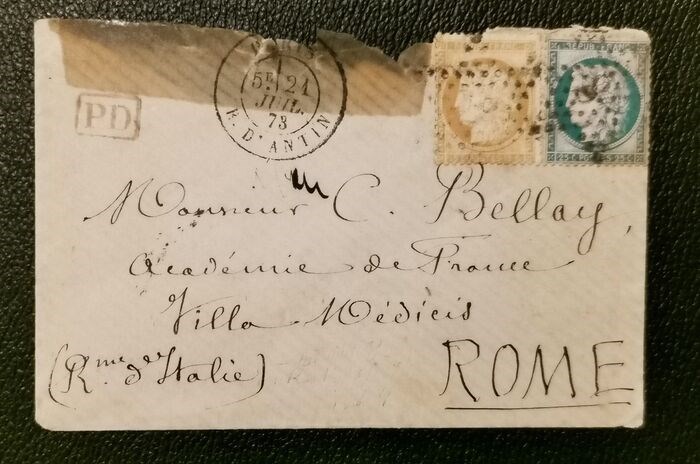 PARIS
5E 21
JUIL.
73
R. D'ANTIN
PD
REPUB. FRANC.
25 C POSTES 25 C
Monsieur C. Bellay,
Académie de France
Villa Médicis
(R.me d'Italie)
ROME